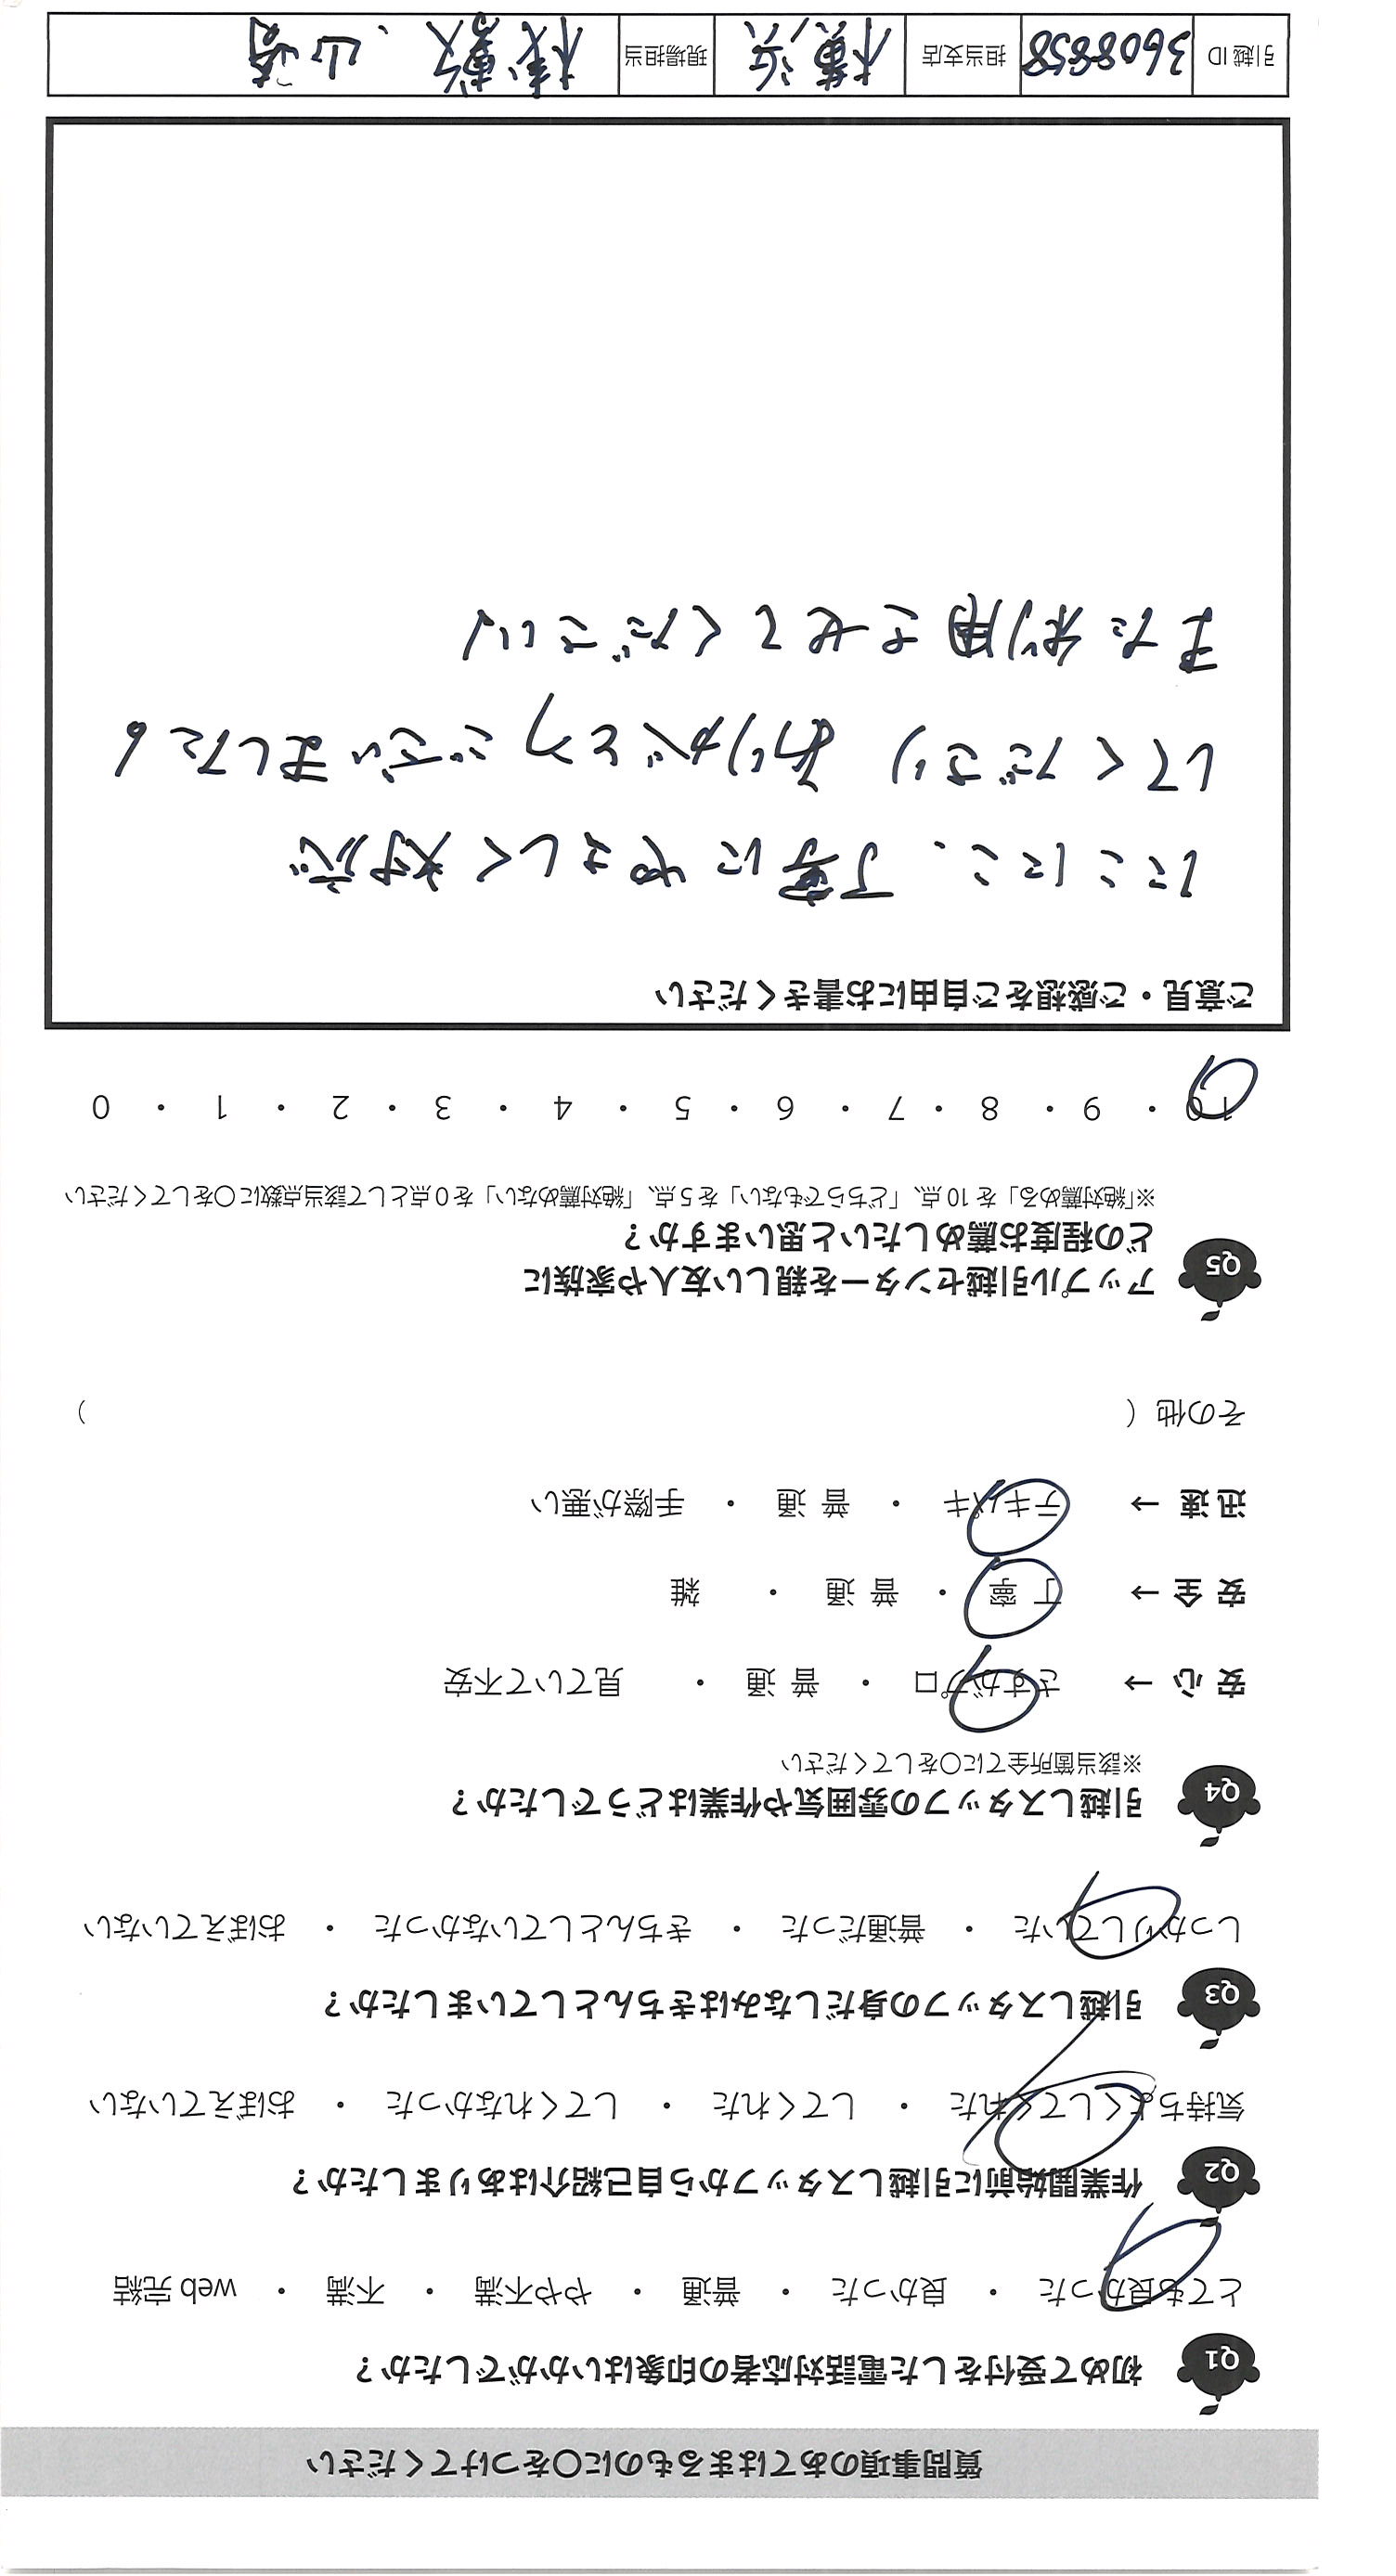 質問事項のあてはまるものに〇をつけてください
Q1 初めて受付をした電話対応者の印象はいかがでしたか？
とても良かった ・ 良かった ・ 普通 ・ やや不満 ・ 不満 ・ web 完結
Q2 作業開始前に引越しスタッフから自己紹介はありましたか？
気持ちよくしてくれた ・ してくれた ・ してくれなかった ・ おぼえていない
Q3 引越しスタッフの身だしなみはきちんとしていましたか？
しっかりしていた ・ 普通だった ・ きちんとしていなかった ・ おぼえていない
Q4 引越しスタッフの雰囲気や作業はどうでしたか？
※該当箇所全てに〇をしてください
安心 → さすがプロ ・ 普通 ・ 見ていて不安
安全 → 丁寧 ・ 普通 ・ 雑
迅速 → テキパキ ・ 普通 ・ 手際が悪い
その他 （ ）
Q5 アップル引越センターを親しい友人や家族に
どの程度お薦めしたいと思いますか？
※「絶対薦める」を 10 点、「どちらでもない」を 5 点、「絶対薦めない」を 0 点として該当点数に〇をしてください
10 ・ 9 ・ 8 ・ 7 ・ 6 ・ 5 ・ 4 ・ 3 ・ 2 ・ 1 ・ 0
ご意見・ご感想をご自由にお書きください
にこにこ、丁寧にやさしく対応
してくださり ありがとうございました。
また利用させてください
引越 ID 3608858 担当支店 横浜 現場担当 山崎